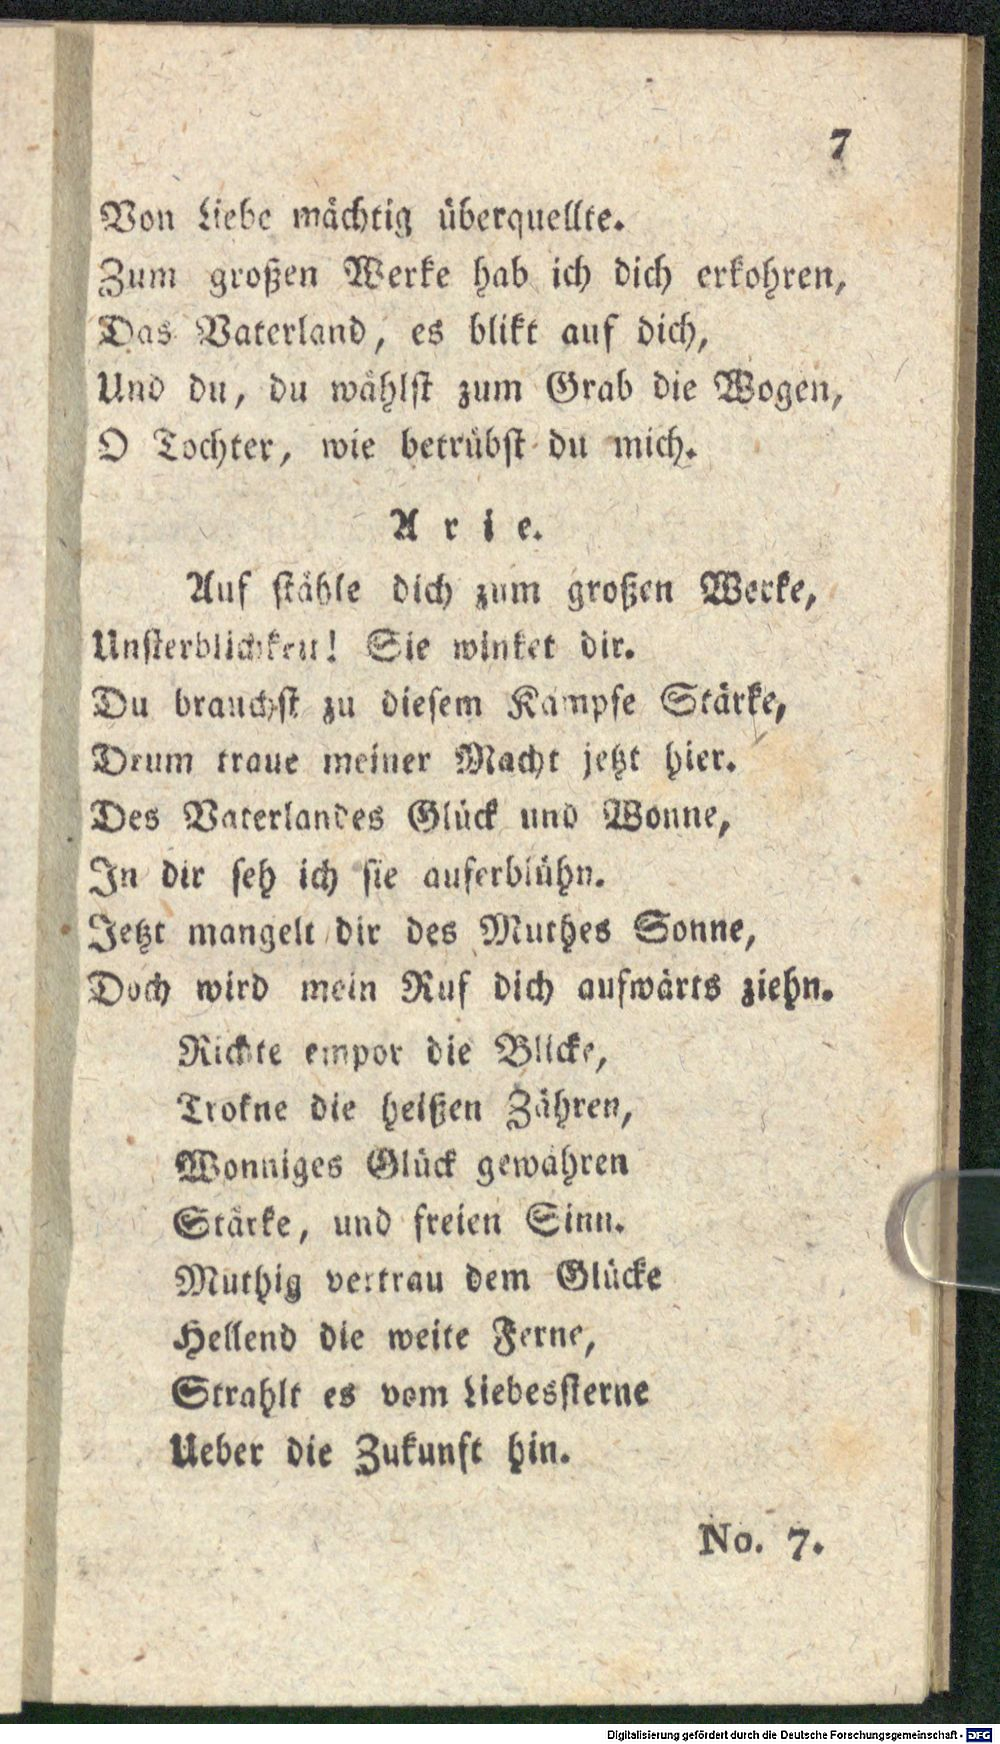 7
Von Liebe mächtig überquellte.
Zum großen Werke hab ich dich erkohren,
Das Vaterland, es blikt auf dich,
Und du, du wählst zum Grab die Wogen,
O Tochter, wie betrübst du mich.
Arie.
Auf stähle dich zum großen Werke,
Unsterblichkeit! Sie winket dir.
Du brauchst zu diesem Kampfe Stärke,
Drum traue meiner Macht jetzt hier.
Des Vaterlandes Glück und Wonne,
In dir seh ich sie auferblühn.
Jetzt mangelt dir des Muthes Sonne,
Doch wird mein Ruf dich aufwärts ziehn.
Richte empor die Blicke,
Trokne die heißen Zähren,
Wonniges Glück gewähren
Stärke, und freien Sinn.
Muthig vertrau dem Glücke
Hellend die weite Ferne,
Strahlt es vom Liebessterne
Ueber die Zukunft hin.
No. 7.
Digitalisierung gefördert durch die Deutsche Forschungsgemeinschaft - DFG